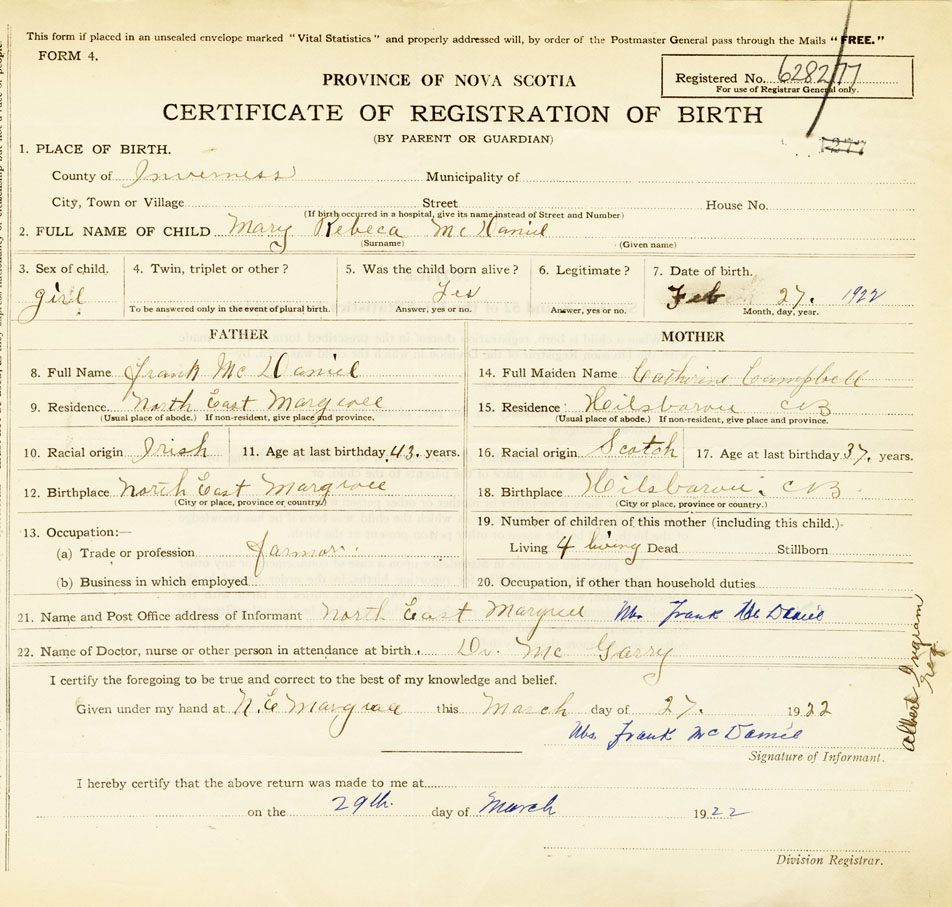 This form if placed in an unsealed envelope marked "Vital Statistics" and properly addressed will, by order of the Postmaster General pass through the Mails "FREE."
FORM 4.
PROVINCE OF NOVA SCOTIA
Registered No. 628277
For use of Registrar General only.
CERTIFICATE OF REGISTRATION OF BIRTH
(BY PARENT OR GUARDIAN)
1277
1. PLACE OF BIRTH.
County of Inverness Municipality of
City, Town or Village Street House No.
(If birth occurred in a hospital, give its name instead of Street and Number)
2. FULL NAME OF CHILD Mary Rebeca McDaniel
(Surname) (Given name)
3. Sex of child. 4. Twin, triplet or other? 5. Was the child born alive? 6. Legitimate? 7. Date of birth.
girl Yes Feb 27. 1922
To be answered only in the event of plural birth. Answer, yes or no. Answer, yes or no. Month, day, year.
FATHER MOTHER
8. Full Name Frank McDaniel 14. Full Maiden Name Catherine Campbell
9. Residence. North East Margree 15. Residence: Hilsborou CB
(Usual place of abode.) If non-resident, give place and province. (Usual place of abode.) If non-resident, give place and province.
10. Racial origin Irish 11. Age at last birthday 43. years. 16. Racial origin Scotch 17. Age at last birthday 37. years.
12. Birthplace North East Margree 18. Birthplace Hilsborou. CB.
(City or place, province or country.) (City or place, province or country.)
13. Occupation:— 19. Number of children of this mother (including this child.)
(a) Trade or profession Farmor. Living 4 living Dead Stillborn
(b) Business in which employed 20. Occupation, if other than household duties
21. Name and Post Office address of Informant North East Margree Mrs. Frank McDaniel
22. Name of Doctor, nurse or other person in attendance at birth. Dr. McGarry
I certify the foregoing to be true and correct to the best of my knowledge and belief.
Given under my hand at N.E Margree this March day of 27. 1922
Mrs. Frank McDaniel
Signature of Informant.
Albert Ingram
Reg
I hereby certify that the above return was made to me at
on the 29th. day of March 1922
Division Registrar.